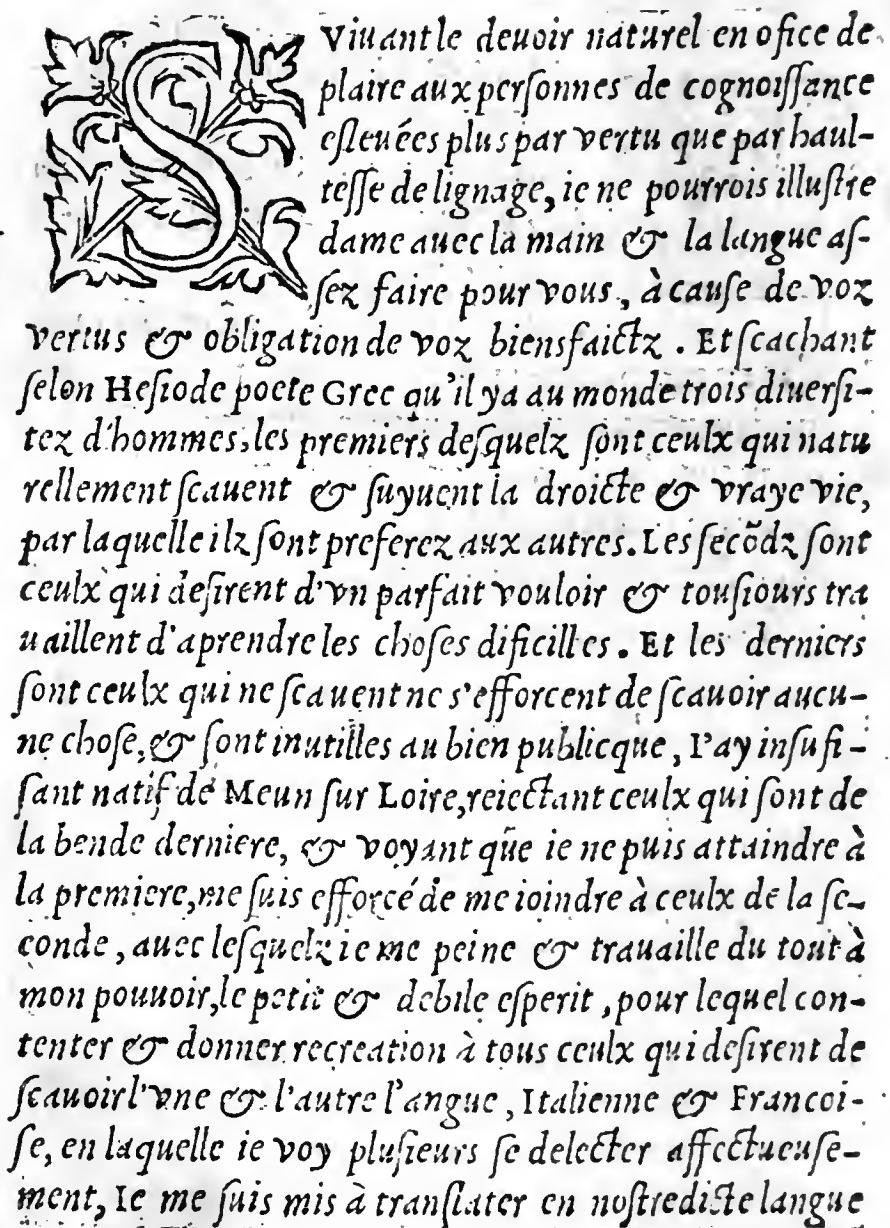 SViuant le deuoir naturel en ofice de
plaire aux perſonnes de cognoiſſance
eſleuées plus par vertu que par haul-
teſſe de lignage, ie ne pourrois illuſtre
dame auec la main & la langue aſ-
ſez faire pour vous, à cauſe de voz
vertus & obligation de voz biensfaictz. Et ſcachant
ſelon Heſiode poete Grec qu'il ya au monde trois diuerſi-
tez d'hommes, les premiers deſquelz ſont ceulx qui natu
rellement ſcauent & ſuyuent la droicte & vraye vie,
par laquelle ilz ſont preferez aux autres. Les ſecõdz ſont
ceulx qui deſirent d'vn parfait vouloir & touſiours tra
uaillent d'aprendre les choſes dificilles. Et les derniers
ſont ceulx qui ne ſcauent ne s'efforcent de ſcauoir aucu-
ne choſe, & ſont inutilles au bien publicque, I'ay inſufi-
ſant natif de Meun ſur Loire, reiectant ceulx qui ſont de
la bende derniere, & voyant que ie ne puis attaindre à
la premiere, me ſuis efforcé de me ioindre à ceulx de la ſe-
conde, auec leſquelz ie me peine & trauaille du tout à
mon pouuoir, le petit & debile eſperit, pour lequel con-
tenter & donner recreation à tous ceulx qui deſirent de
ſcauoir l'vne & l'autre l'angue, Italienne & Francoi-
ſe, en laquelle ie voy pluſieurs ſe delecter affectueuſe-
ment, Ie me ſuis mis à tranſlater en noſtredicte langue